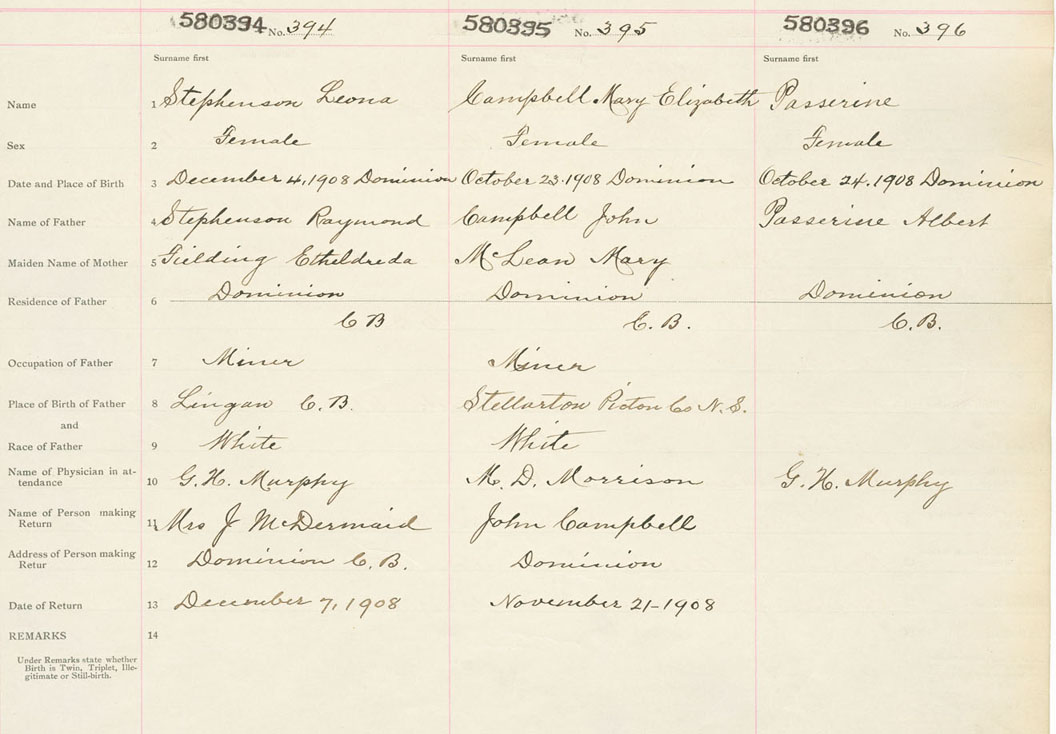 580394 No. 394 580395 No. 395 580396 No. 396
Surname first Surname first Surname first
Name 1 Stephenson Leona Campbell Mary Elizabeth Passerine
Sex 2 Female Female Female
Date and Place of Birth 3 December 4, 1908 Dominion October 23. 1908 Dominion October 24, 1908 Dominion
Name of Father 4 Stephenson Raymond Campbell John Passerine Albert
Maiden Name of Mother 5 Fielding Etheldreda McLean Mary
Residence of Father 6 Dominion Dominion Dominion
C B C. B. C. B.
Occupation of Father 7 Miner Miner
Place of Birth of Father 8 Lingan C. B. Stellarton Pictou Co N. S.
and
Race of Father 9 White White
Name of Physician in at-
tendance 10 G. H. Murphy M. D. Morrison G. H. Murphy
Name of Person making
Return 11 Mrs J McDermaid John Campbell
Address of Person making
Retur 12 Dominion C. B. Dominion
Date of Return 13 December 7, 1908 November 21-1908
REMARKS 14
Under Remarks state whether
Birth is Twin, Triplet, Ille-
gitimate or Still-birth.